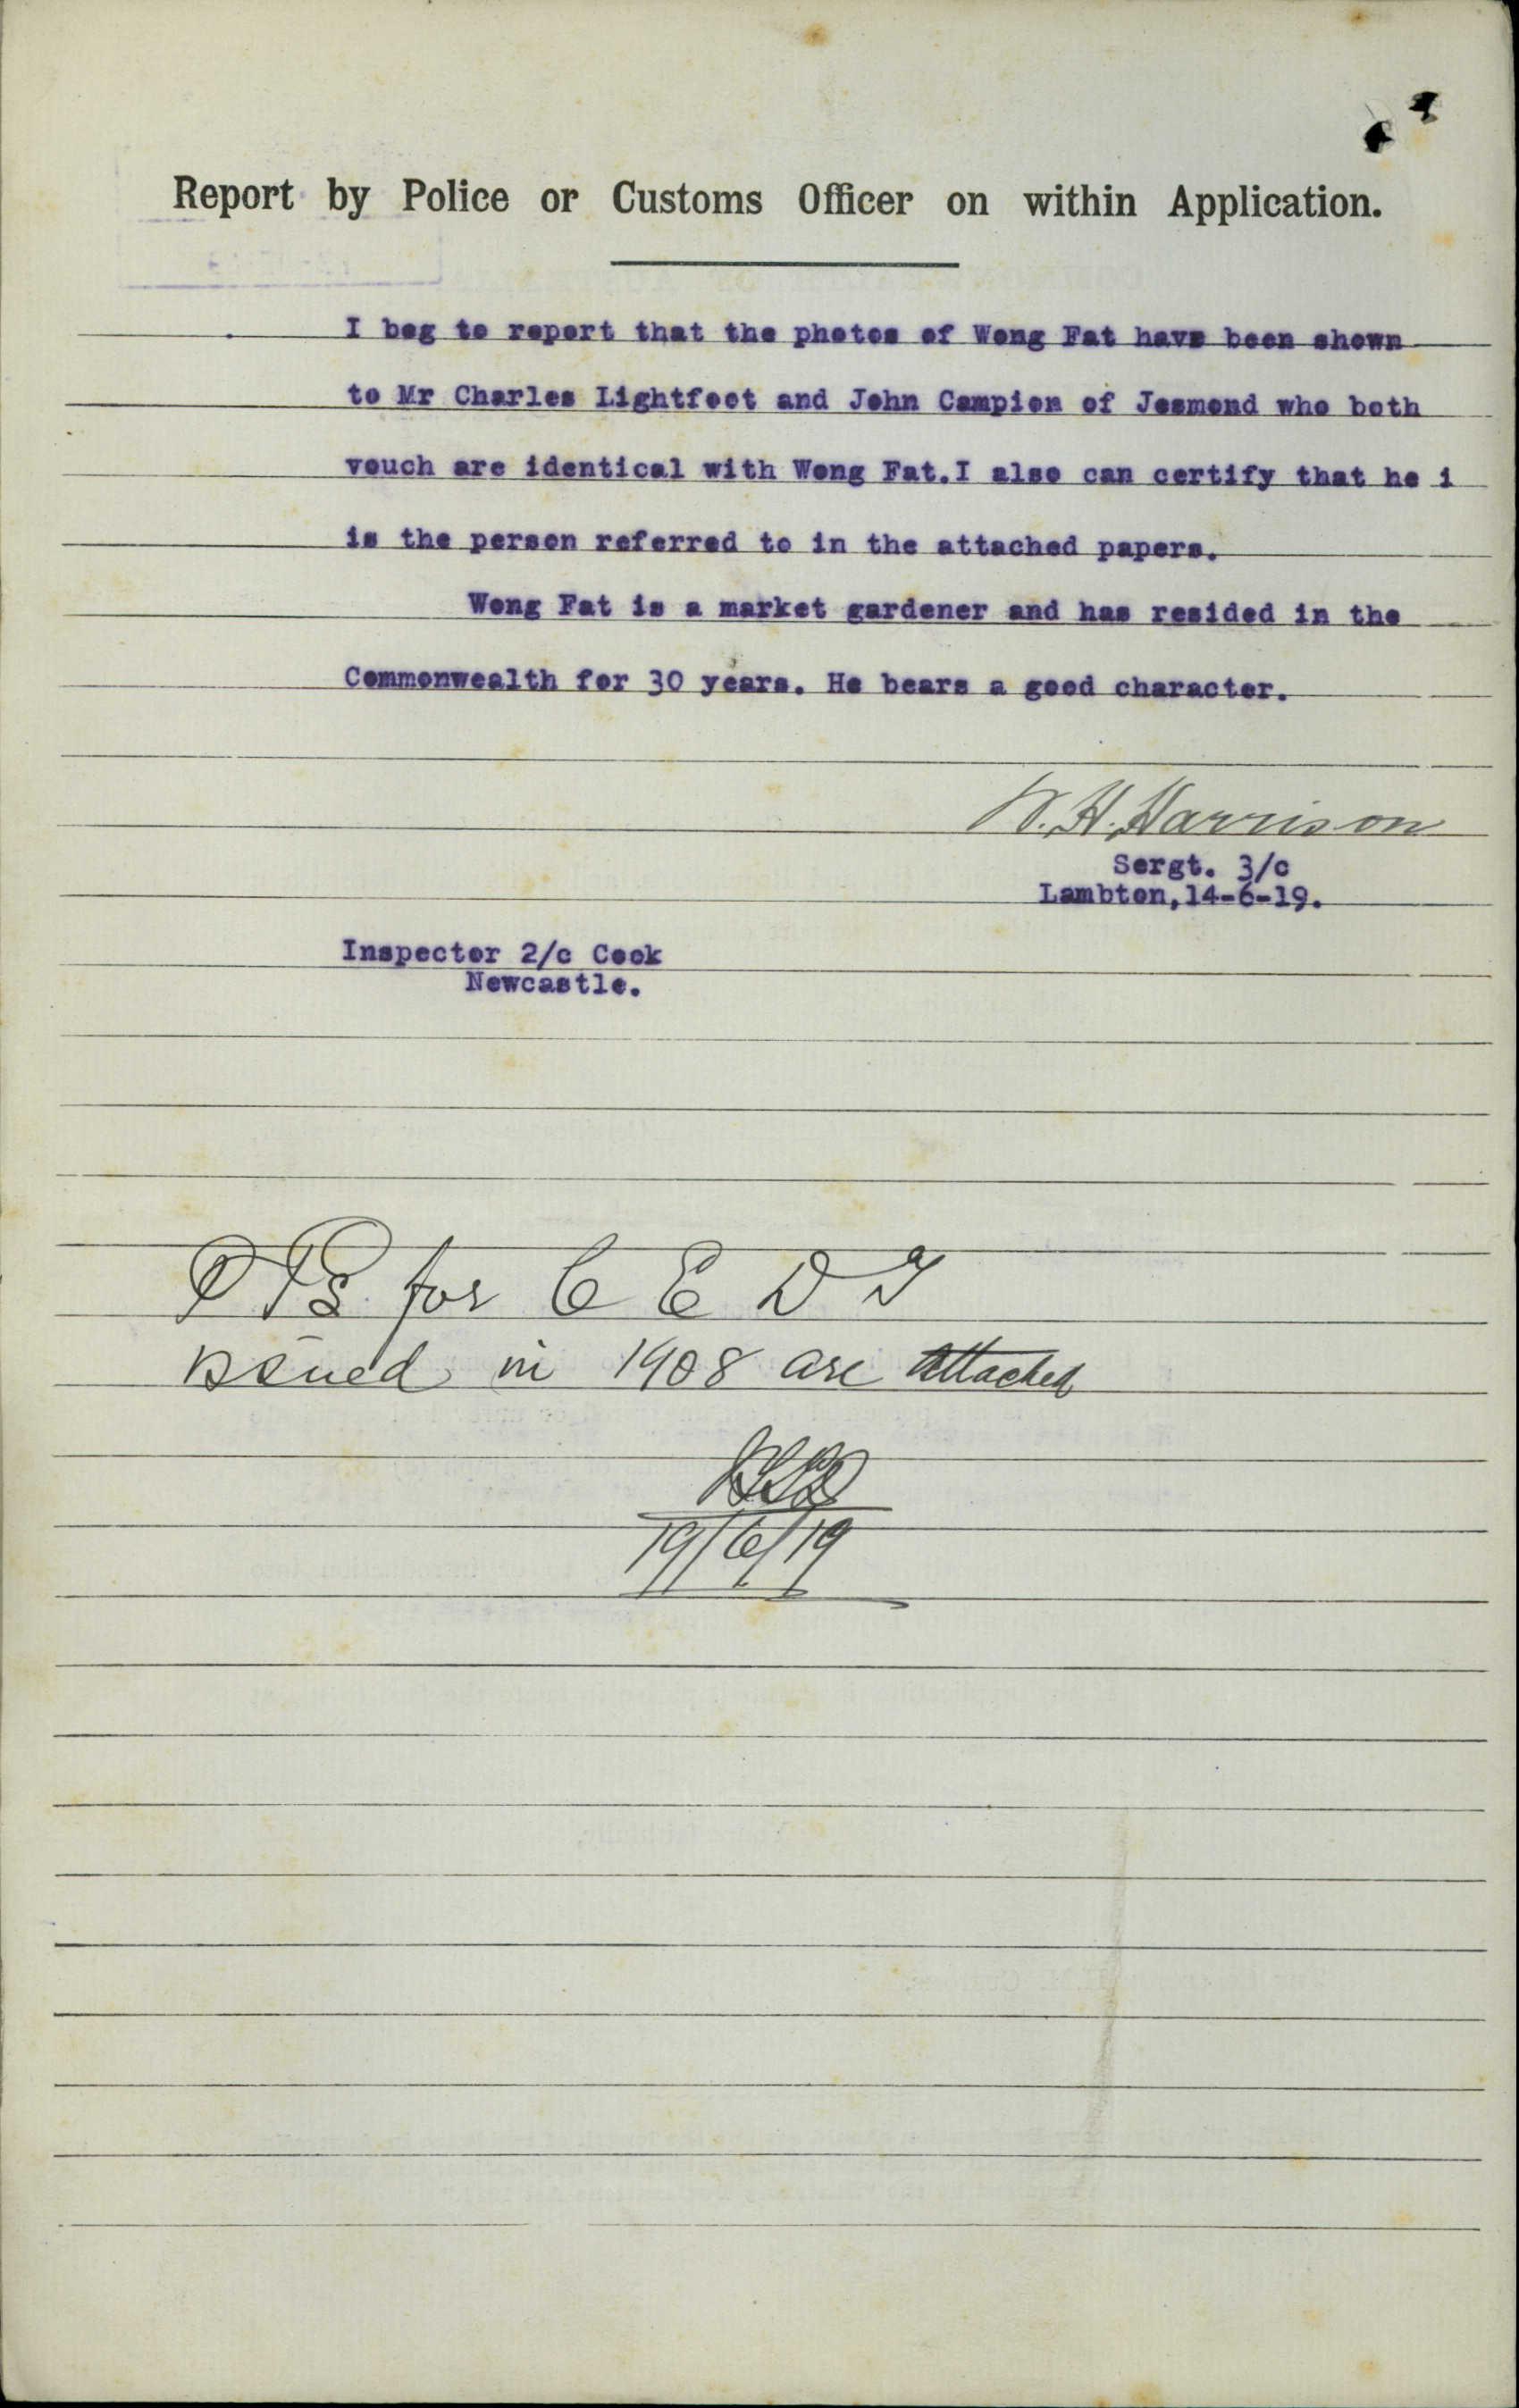 Report by Police or Customs Officer on within Application.
I beg to report that the photos of Wong Fat have been shown
to Mr Charles Lightfoot and John Campion of Jesmond who both
vouch are identical with Wong Fat.I also can certify that he i
is the person referred to in the attached papers.
Wong Fat is a market gardener and has resided in the
Commonwealth for 30 years. He bears a good character.
W.H.Harrison
Sergt. 3/c
Lambton,14-6-19.
Inspector 2/c Cook
Newcastle.
for C E D T
issued in 1908 are attached
19/6/19